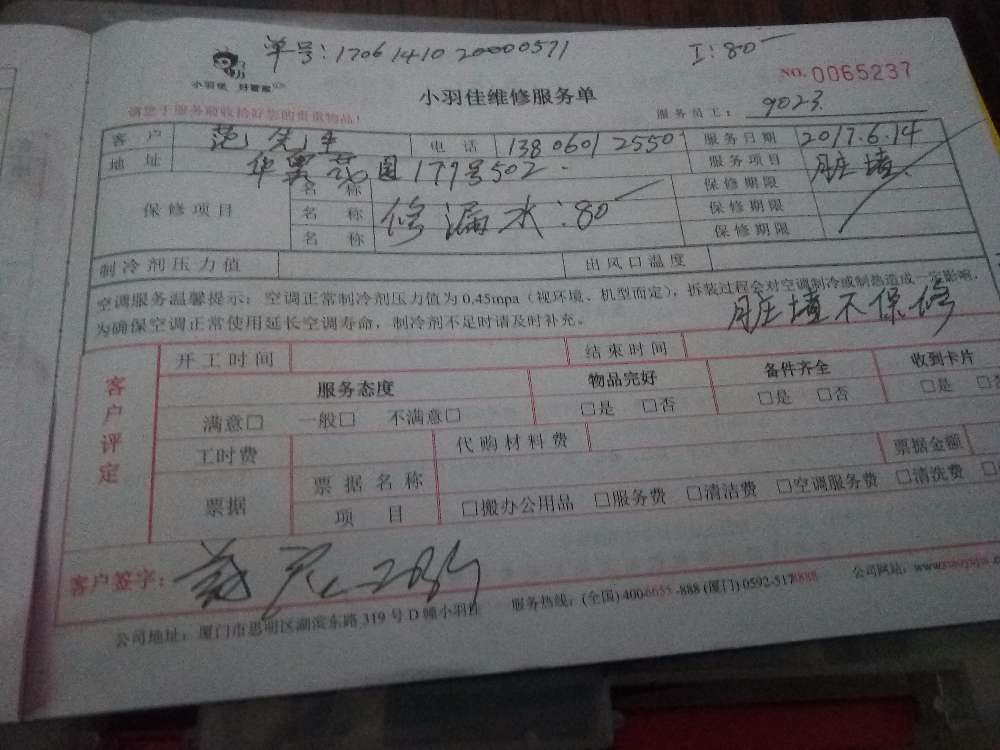 单号:17061410 20000571 I:80
小羽佳 好管家
NO.0065237
小羽佳维修服务单
请您于服务前收拾好您的贵重物品! 服务员工: 9023
客户 范先生 电话 13806012550 服务日期 2017.6.14
地址 华昊花园179号502 服务项目 脏堵
保修项目 名称 保修期限
名称 修漏水:80 保修期限
名称 保修期限
制冷剂压力值 出风口温度
空调服务温馨提示:空调正常制冷剂压力值为0.45mpa(视环境、机型而定),拆装过程会对空调制冷或制热造成一定影响,
为确保空调正常使用延长空调寿命,制冷剂不足时请及时补充。
脏堵不保修
客户评定 开工时间 结束时间
服务态度 物品完好 备件齐全 收到卡片
满意□ 一般□ 不满意□ □是 □否 □是 □否 □是 □否
工时费 代购材料费 票据金额
票据 票据名称
项目 □搬办公用品 □服务费 □清洁费 □空调服务费 □清洗费 □
客户签字:
公司地址:厦门市思明区湖滨东路319号D幢小羽佳 服务热线:(全国)400-6655-888(厦门)0592-517 888 公司网站:www.xiaoyujia.c